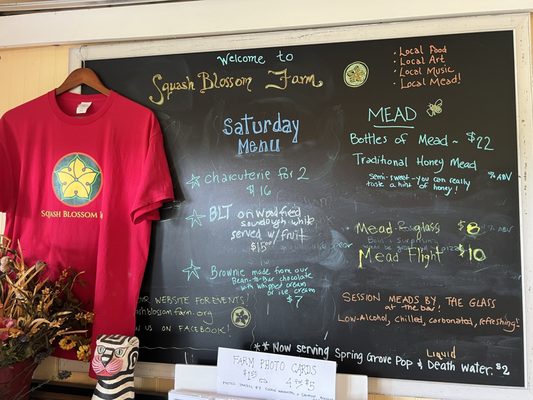 Welcome to
Squash Blossom Farm
• Local Food
• Local Art
• Local Music
• Local Mead!
Saturday
Menu
charcuterie for 2
$16
BLT on woodfired
sourdough white
served w/ fruit
$15
Brownie made from our
Bean-to-Bar chocolate
with whipped cream
or ice cream
$7
MEAD
Bottles of Mead ~ $22
Traditional Honey Mead
Semi-sweet - you can really
taste a hint of honey!
% ABV
Mead glass $8
Mead Flight $10
SESSION MEADS BY THE GLASS
at the bar!
Low-Alcohol, chilled, carbonated, refreshing!
OUR WEBSITE FOR EVENTS!
shblossomfarm.org
US ON FACEBOOK!
** Now serving Spring Grove Pop & Liquid Death water. $2
SQUASH BLOSSOM
FARM PHOTO CARDS
$1.50 4 for $5